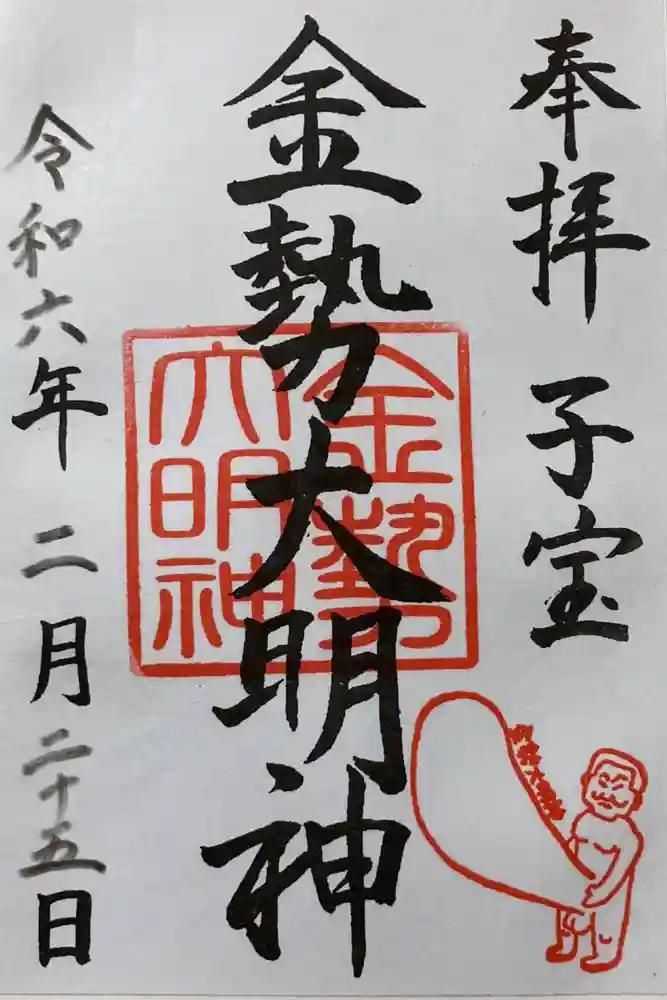 奉拝 子宝
金勢大明神
金勢
大明神
令和六年 二月二十五日